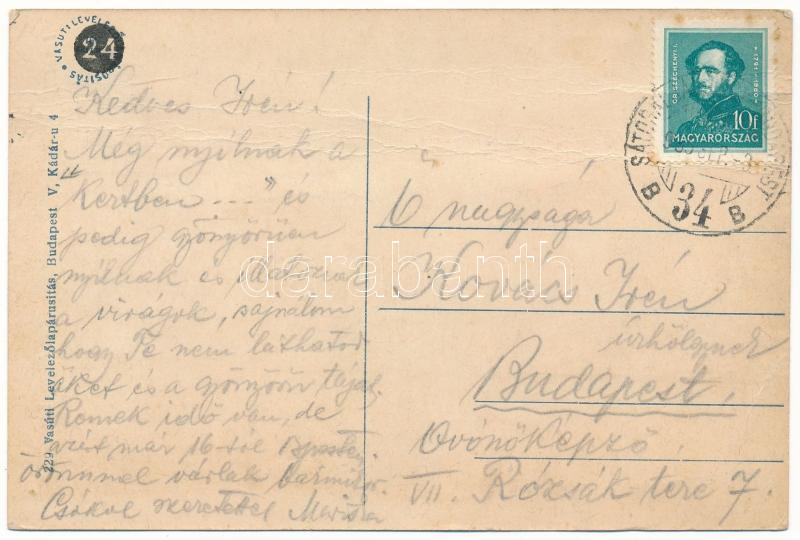 VASUTI LEVELE
24
Kedves Irén!
Még nyílnak a
kertben ..." és
pedig gyönyörűen
nyílnak és
a virágok, sajnálom
hogy Te nem láthatod
őket és a gyönyörű tájat.
Remek idő van, de
azért már 16-tól Bpesten
örömmel várlak bármikor.
Csókol szeretettel Mariska
229 Vasúti Levelezőlapárusitás, Budapest V, Kádár-u 4
GR. SZÉCHENYI I.
1791-1860
10f
MAGYARORSZÁG
B 34 B
Ő nagysága
Kovács Irén
úrhölgynek
Budapest,
Óvónőképző
VII. Rózsák tere 7.
darabanth